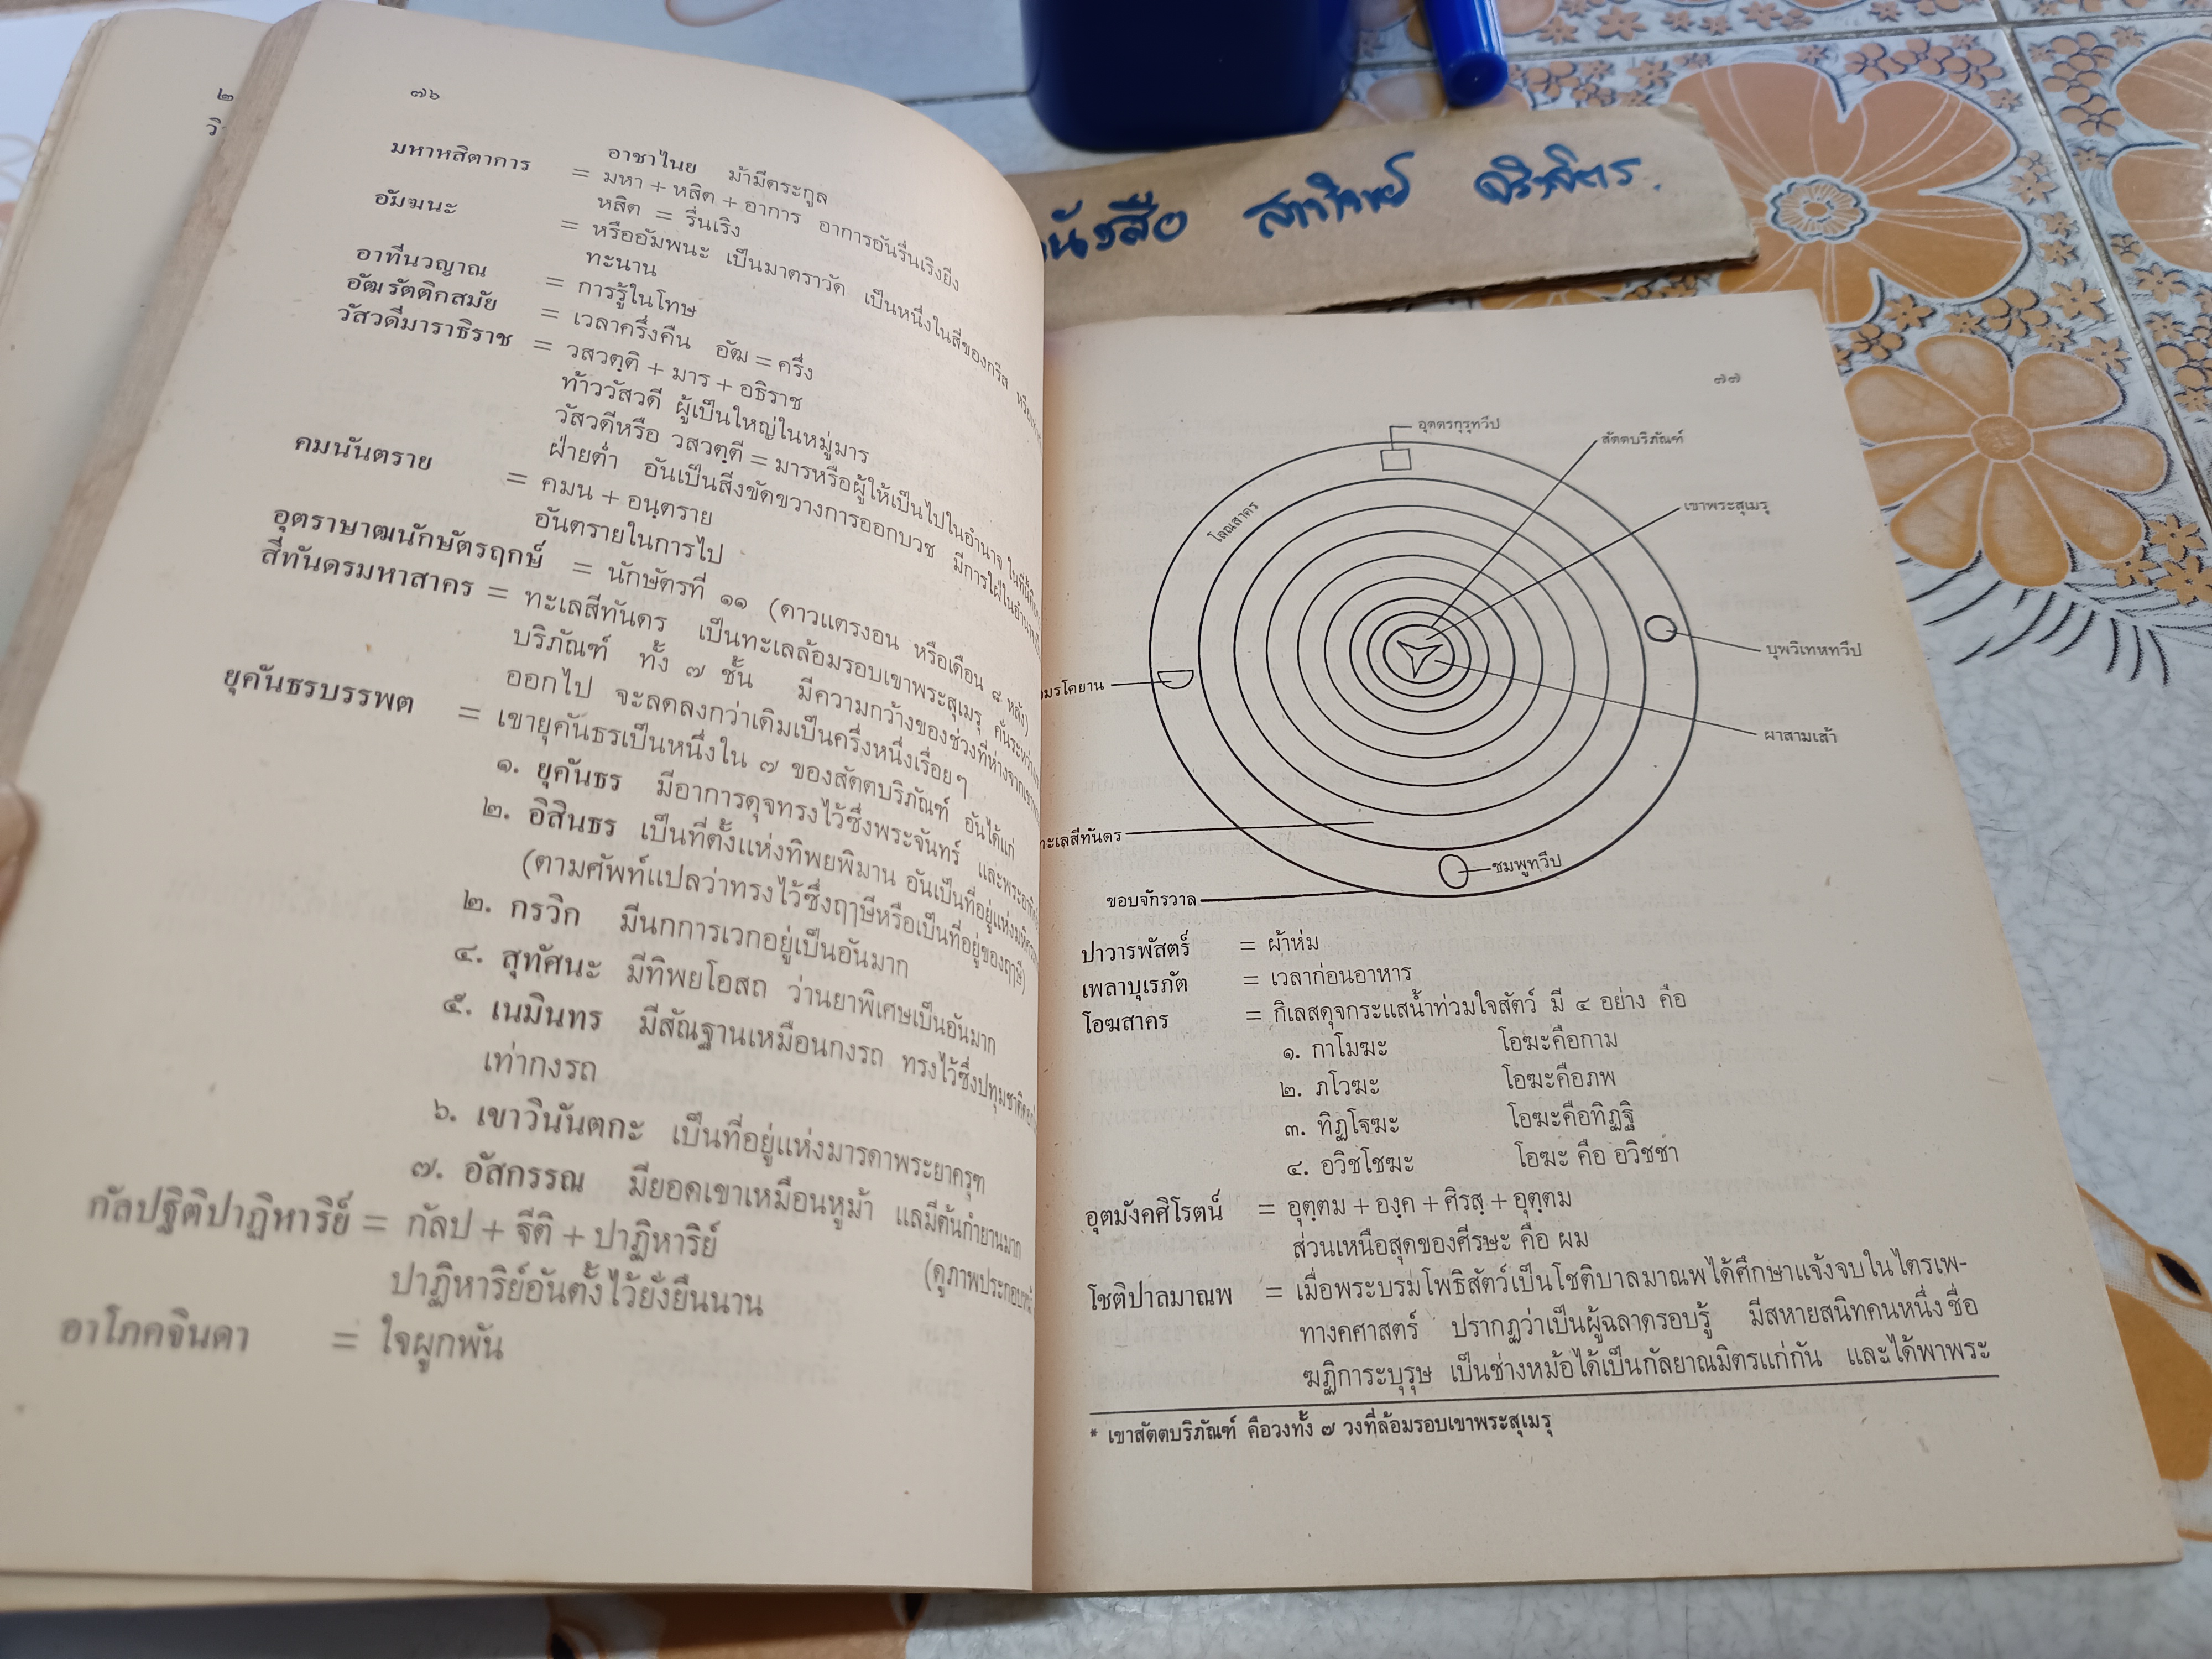 ๗๖
อาชาไนย ม้ามีตระกูล
มหาหสิตาการ = มหา + หสิต + อาการ อาการอันรื่นเริงยิ่ง
หสิต = รื่นเริง
อัมฆนะ = หรืออัมพนะ เป็นมาตราวัด เป็นหนึ่งในสี่ของกรีส
ทะนาน
อาทีนวญาณ = การรู้ในโทษ
อัฒรัตติกสมัย = เวลาครึ่งคืน อัฒ = ครึ่ง
วัสวดีมาราธิราช = วสวตฺติ + มาร + อธิราช
ท้าววัสวดี ผู้เป็นใหญ่ในหมู่มาร
วัสวดีหรือ วสวตฺตี = มารหรือผู้ให้เป็นไปในอำนาจ
ฝ่ายต่ำ อันเป็นสิ่งขัดขวางการออกบวช
คมนันตราย = คมน + อนฺตราย
อันตรายในการไป
อุตราษาฒนักษัตรฤกษ์ = นักษัตรที่ ๑๑ (ดาวแตรงอน หรือเดือน ๘ หลัง)
สีทันดรมหาสาคร = ทะเลสีทันดร เป็นทะเลล้อมรอบเขาพระสุเมรุ
บริภัณฑ์ ทั้ง ๗ ชั้น มีความกว้างของช่วงที่ห่างจาก
ออกไป จะลดลงกว่าเดิมเป็นครึ่งหนึ่งเรื่อยๆ
ยุคันธรบรรพต = เขายุคันธรเป็นหนึ่งใน ๗ ของสัตตบริภัณฑ์ อันได้แก่
๑. ยุคันธร มีอาการดุจทรงไว้ซึ่งพระจันทร์ และพระอาทิตย์
๒. อิสินธร เป็นที่ตั้งแห่งทิพยพิมาน อันเป็นที่อยู่แห่ง
(ตามศัพท์แปลว่าทรงไว้ซึ่งฤๅษีหรือเป็นที่อยู่ของฤๅษี)
๒. กรวิก มีนกการเวกอยู่เป็นอันมาก
๔. สุทัศนะ มีทิพยโอสถ ว่านยาพิเศษเป็นอันมาก
๕. เนมินทร มีสัณฐานเหมือนกงรถ ทรงไว้ซึ่งปทุมชาติ
เท่ากงรถ
๖. เขาวินันตกะ เป็นที่อยู่แห่งมารดาพระยาครุฑ
๗. อัสกรรณ มียอดเขาเหมือนหูม้า แลมีต้นกำยานมาก
(ดูภาพประกอบ
กัลปฐิติปาฏิหาริย์ = กัลป + ฐีติ + ปาฏิหาริย์
ปาฏิหาริย์อันตั้งไว้ยั่งยืนนาน
อาโภคจินดา = ใจผูกพัน
๗๗
อุตตรกุรุทวีป
สัตตบริภัณฑ์
เขาพระสุเมรุ
โลณสาคร
บุพวิเทหทวีป
อมรโคยาน
ผาสามเส้า
ทะเลสีทันดร
ชมพูทวีป
ขอบจักรวาล
ปาวารพัสตร์ = ผ้าห่ม
เพลาบุเรภัต = เวลาก่อนอาหาร
โอฆสาคร = กิเลสดุจกระแสน้ำท่วมใจสัตว์ มี ๔ อย่าง คือ
๑. กาโมฆะ โอฆะคือกาม
๒. ภโวฆะ โอฆะคือภพ
๓. ทิฏโจฆะ โอฆะคือทิฏฐิ
๔. อวิชโชฆะ โอฆะ คือ อวิชชา
อุตมังคศิโรตน์ = อุตฺตม + องฺค + ศิรสฺ + อุตฺตม
ส่วนเหนือสุดของศีรษะ คือ ผม
โชติปาลมาณพ = เมื่อพระบรมโพธิสัตว์เป็นโชติบาลมาณพได้ศึกษาแจ้งจบในไตรเพ-
ทางคศาสตร์ ปรากฏว่าเป็นผู้ฉลาดรอบรู้ มีสหายสนิทคนหนึ่ง ชื่อ
ฆฏิการะบุรุษ เป็นช่างหม้อได้เป็นกัลยาณมิตรแก่กัน และได้พาพระ
* เขาสัตตบริภัณฑ์ คือวงทั้ง ๗ วงที่ล้อมรอบเขาพระสุเมรุ
หนังสือ